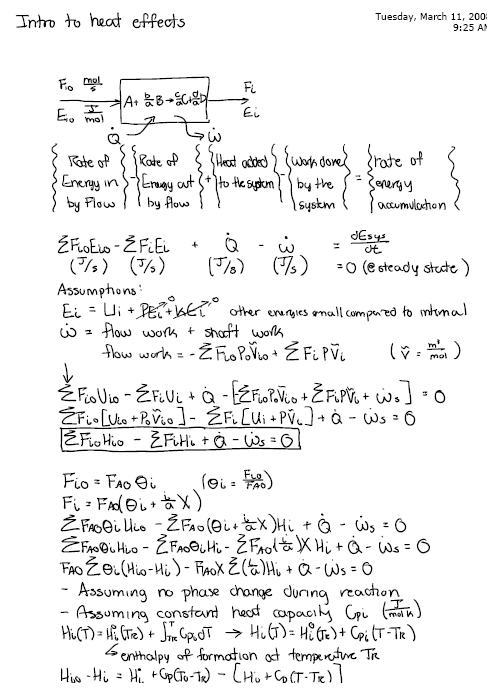 Intro to heat effects
Tuesday, March 11, 2008
9:25 AM
Fio mol/s
Eio J/mol
A + b/a B → c/a C + d/a D
Fi
Ei
Q̇ Ẇ
{Rate of Energy in by Flow} - {Rate of Energy out by flow} + {Heat added to the system} - {Work done by the system} = {rate of energy accumulation}
ΣFioEio - ΣFiEi + Q̇ - ẇ = dEsys/dt
(J/s) (J/s) (J/s) (J/s) = 0 (@ steady state)
Assumptions:
Ei = Ui + PEi→0 + KEi→0 other energies small compared to internal
ẇ = flow work + shaft work
flow work = -ΣFioPoṼio + ΣFiPṼi (ṽ = m³/mol)
↓
ΣFioUio - ΣFiUi + Q̇ - [ΣFioPoṼio + ΣFiPṼi + ẇs] = 0
ΣFio[Uio + PoṼio] - ΣFi[Ui + PṼi] + Q̇ - ẇs = 0
ΣFioHio - ΣFiHi + Q̇ - ẇs = 0
Fio = FAo Θi (Θi = Fio/FAo)
Fi = FAo(Θi + i/a X)
ΣFAoΘiHio - ΣFAo(Θi + i/a X)Hi + Q̇ - ẇs = 0
ΣFAoΘiHio - ΣFAoΘiHi - ΣFAo(i/a)XHi + Q̇ - ẇs = 0
FAo ΣΘi(Hio-Hi) - FAoX Σ(i/a)Hi + Q̇ - ẇs = 0
- Assuming no phase change during reaction
- Assuming constant heat capacity Cpi (J/mol K)
Hi(T) = Hi°(TR) + ∫TR^T CpidT → Hi(T) = Hi°(TR) + Cpi(T-TR)
↳ enthalpy of formation at temperature TR
Hio - Hi = Hi° + Cp(To-TR) - [Hi° + Cp(T-TR)]